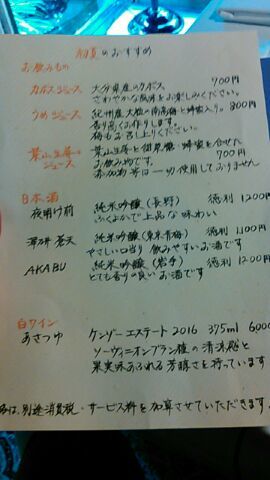 初夏のおすすめ
お飲みもの
カボスジュース 大分県産のカボス 700円
さわやかな風味をお楽しみください。
うめジュース 紀州産大粒の南高梅と蜂蜜入り。 800円
香り高くお作りします。
梅もお召し上りください。
葉山生姜の 葉山生姜と 蜂蜜を合せた
ジュース お飲み物です。 700円
添加物等は一切使用しておりません
日本酒
夜明け前 純米吟醸(長野) 徳利 1200円
ふくよかで上品な味わい
澤乃井 蒼天 純米吟醸(東京青梅) 徳利 1100円
やさしい口当り 飲みやすいお酒です
AKABU 純米吟醸(岩手) 徳利 1200円
とても香りの良いお酒です
白ワイン
あさつゆ ケンゾーエステート 2016 375ml 6000
ソーヴィニオンブラン種の清涼感と
果実味あふれる芳醇さを持っています
は、別途消費税・サービス料を加算させていただきます。